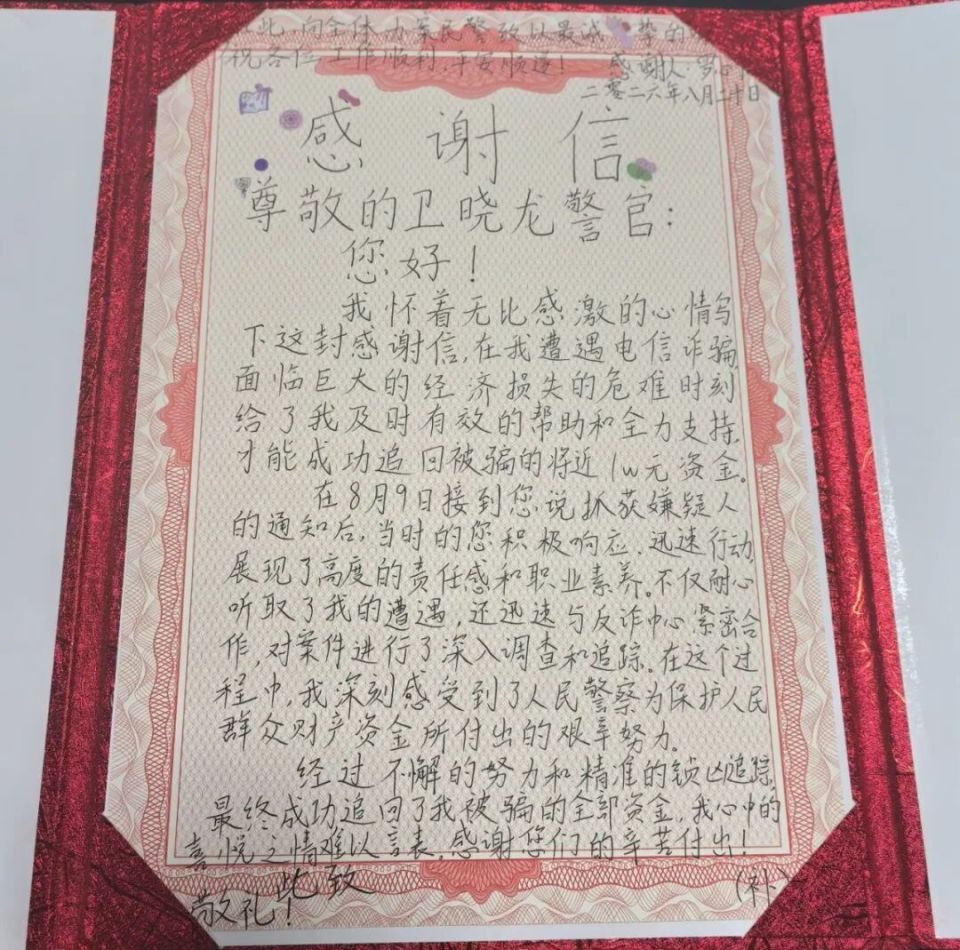 此,向全体办案民警致以最诚挚的
祝各位工作顺利,平安顺遂!
感谢人:罗
二零二六年八月二十日
感谢信
尊敬的卫晓龙警官:
您好!
我怀着无比感激的心情写
下这封感谢信,在我遭遇电信诈骗,
面临巨大的经济损失的危难时刻
给了我及时有效的帮助和全力支持,
才能成功追回被骗的将近1w元资金。
在8月9日接到您说抓获嫌疑人
的通知后,当时的您积极响应、迅速行动,
展现了高度的责任感和职业素养。不仅耐心
听取了我的遭遇,还迅速与反诈中心紧密合
作,对案件进行了深入调查和追踪。在这个过
程中,我深刻感受到了人民警察为保护人民
群众财产资金所付出的艰辛努力。
经过不懈的努力和精准的锁凶追踪,
最终成功追回了我被骗的全部资金,我心中的
喜悦之情难以言表,感谢您们的辛苦付出!
此致
(补)
敬礼!